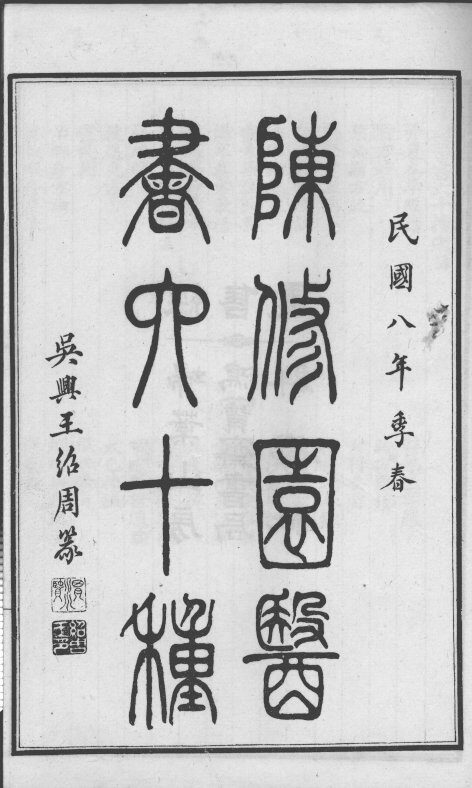 民國八年季春
陳修園醫
書六十種
吳興王紹周篆